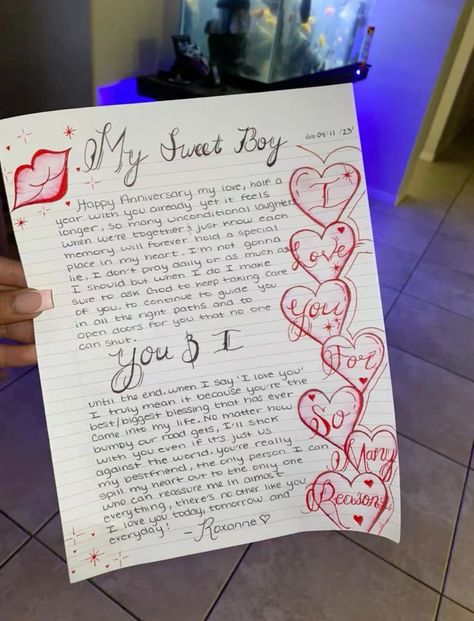 My Sweet Boy
date 04/11/23'
Happy Anniversary my love, half a
year with you already yet it feels
longer, so many unconditional laughter
when we're together & just know each
memory will forever hold a special
place in my heart. I'm not gonna
lie, I don't pray daily or as much as
I should but when I do I make
sure to ask God to keep taking care
of you, to continue to guide you
in all the right paths and to
open doors for you that no one
can shut.
You & I
until the end. when I say 'I love you'
I truly mean it because you're the
best/biggest blessing that has ever
came into my life. No matter how
bumpy our road gets, I'll stick
with you even if it's just us
against the world. you're really
my bestfriend, the only person I can
spill my heart out to the only one
who can reassure me in almost
everything, there's no other like you
I love you today, tomorrow and
everyday!
- Roxanne♡
I
Love
You
For
So
Many
Reasons